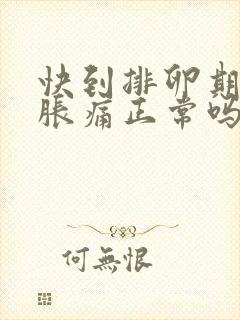 快到排卵期
脹痛正常吗
何無恨